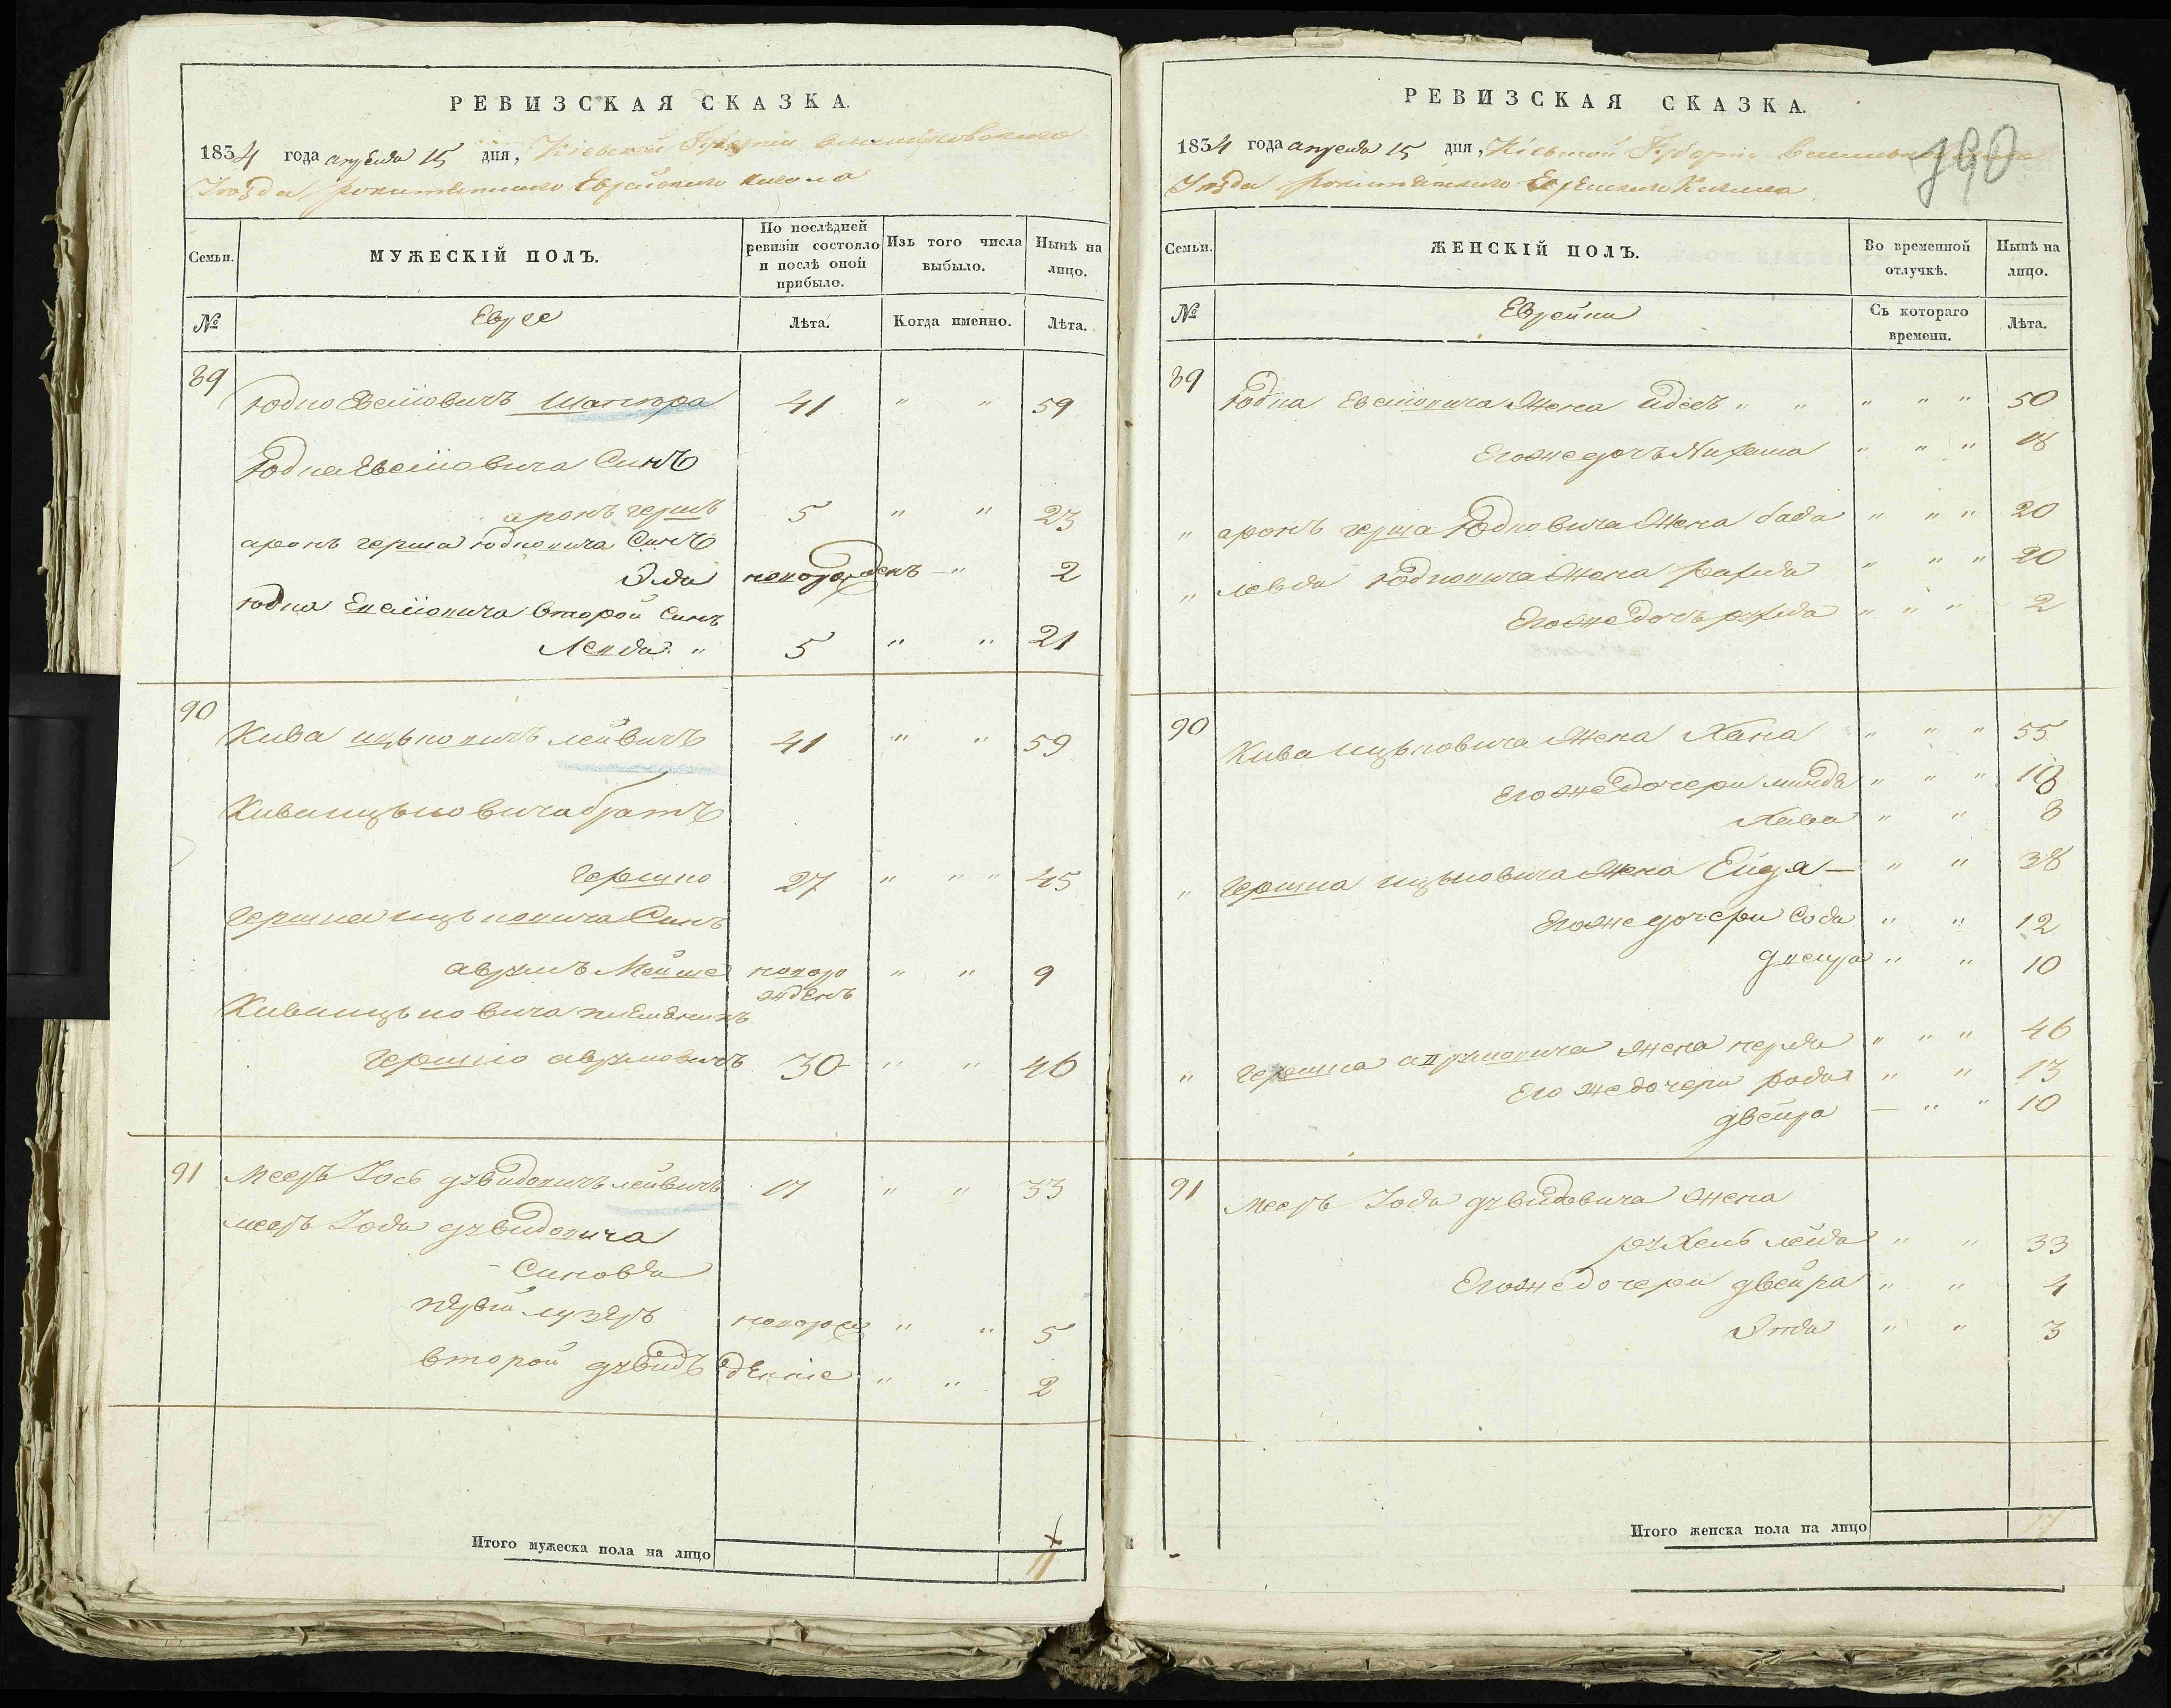 РЕВИЗСКАЯ СКАЗКА.
1834 года апреля 15 дня, Кіевской Губерніи Васильковского
Уѣзда рокитянского Еврейского кагала
Семьи.
МУЖЕСКІЙ ПОЛЪ.
По послѣдней ревизіи состояло и послѣ оной прибыло.
Изъ того числа выбыло.
Нынѣ на лицо.
№
Евреи
Лѣта.
Когда именно.
Лѣта.
89
Юдко Евсіiовичъ Шапира 41 " " 59
Юдка Евсіiовича Синъ
аронъ гершъ 5 " " 23
аронъ герша Юдковича Синъ
Эля новорожденъ — " 2
Юдка Евсіiовича второй Синъ
Лейба " 5 " " 21
90
Кива ицьковичъ лейвичъ 41 " " 59
Кива ицьковича братъ
Гершко 27 " " " 45
Гершка ицьковича Синъ
аврумъ Мойше новоро " " 9
жденъ
Кива ицьковича племянникъ
Гершко аврумовичъ 30 " " 46
91 Мееръ Іось дувидовичъ лейвичъ 17 " " 33
меєръ Іося дувидовича
Синовья
первій лузеръ новорож " " 5
второй дувидъ денніе " " 2
Итого мужеска пола на лицо 11
РЕВИЗСКАЯ СКАЗКА.
190
1834 года апреля 15 дня, Кіевской Губерніи Васильковского
Уѣзда рокитянского Еврейского Кагала
Семьи.
ЖЕНСКІЙ ПОЛЪ.
Во временной отлучкѣ.
Нынѣ на лицо.
№
Еврейки
Съ котораго времени.
Лѣта.
89 Юдка Евсіiовича Жена идесъ " " " " " 50
Егоже дочъ " " " 18
" аронъ герша Юдковича Жена бася " " " 20
" лейба Юдковича Жена рахля " " " 20
Егоже дочъ рухля " " " 2
90 Кива ицьковича Жена Хана " " " 55
Егоже дочери миндя " " " 18
Хава " " 8
" Гершка ицьковича Жена Ейдя — " " 38
Егоже дочери Сося " " 12
двейра " " 10
" Гершка аврумовича Жена перля " " " 46
Его же дочери рася " " 13
двейра — " " 10
91 меєръ Іося дувидовича Жена
рухель лейа " " 33
Егоже дочери двейра " " 4
Этя " " 3
Итого женска пола на лицо 17